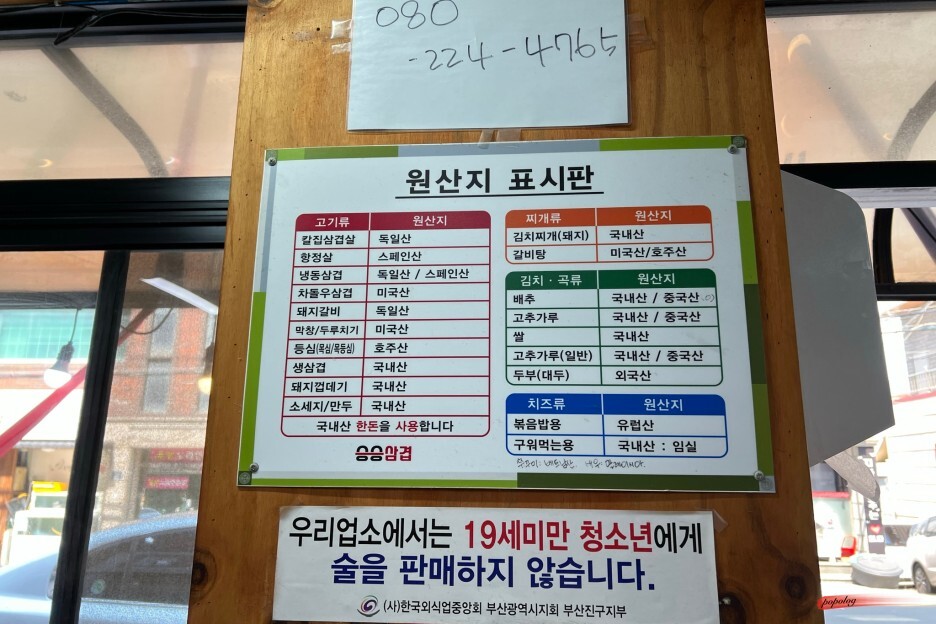 080
-224-4765
원산지 표시판
고기류 원산지
칼집삼겹살 독일산
항정살 스페인산
냉동삼겹 독일산 / 스페인산
차돌우삼겹 미국산
돼지갈비 독일산
막창/두루치기 미국산
등심(목심/목등심) 호주산
생삼겹 국내산
돼지껍데기 국내산
소세지/만두 국내산
국내산 한돈을 사용합니다
승승삼겹
찌개류 원산지
김치찌개(돼지) 국내산
갈비탕 미국산/호주산
김치 · 곡류 원산지
배추 국내산 / 중국산
고추가루 국내산 / 중국산
쌀 국내산
고추가루(일반) 국내산 / 중국산
두부(대두) 외국산
치즈류 원산지
볶음밥용 유럽산
구워먹는용 국내산 : 임실
우리업소에서는 19세미만 청소년에게
술을 판매하지 않습니다.
(사)한국외식업중앙회 부산광역시지회 부산진구지부
popolog